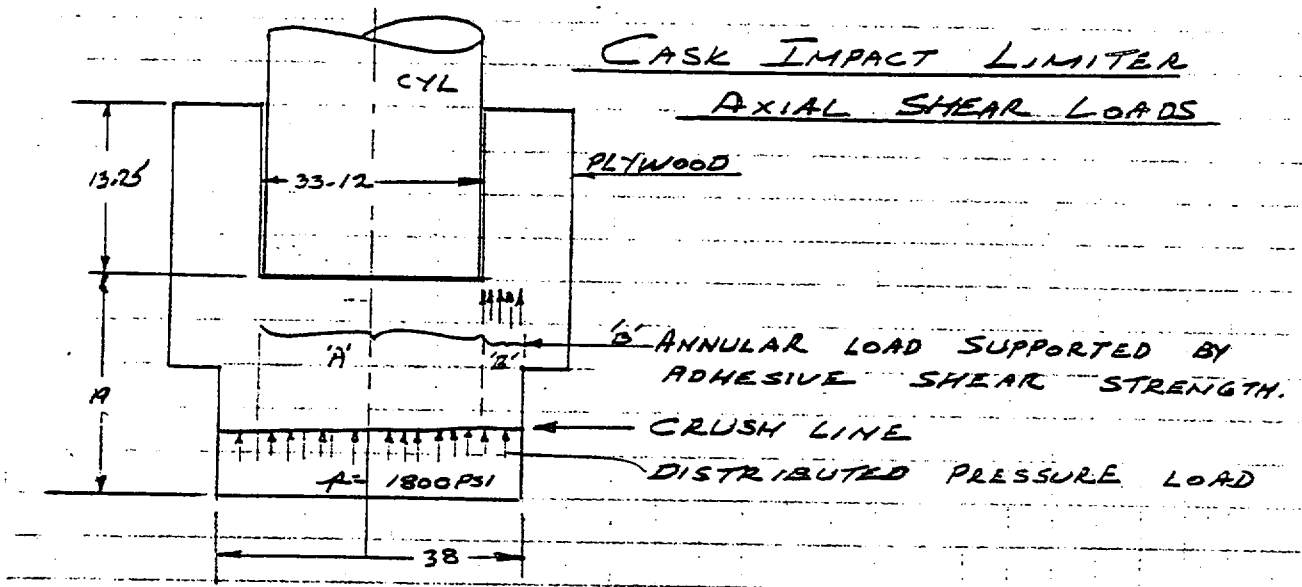 CASK IMPACT LIMITER
AXIAL SHEAR LOADS
CYL
PLYWOOD
13.25
33.12
'A'
'B'
'B' ANNULAR LOAD SUPPORTED BY
ADHESIVE SHEAR STRENGTH.
19
CRUSH LINE
DISTRIBUTED PRESSURE LOAD
p= 1800 PSI
38